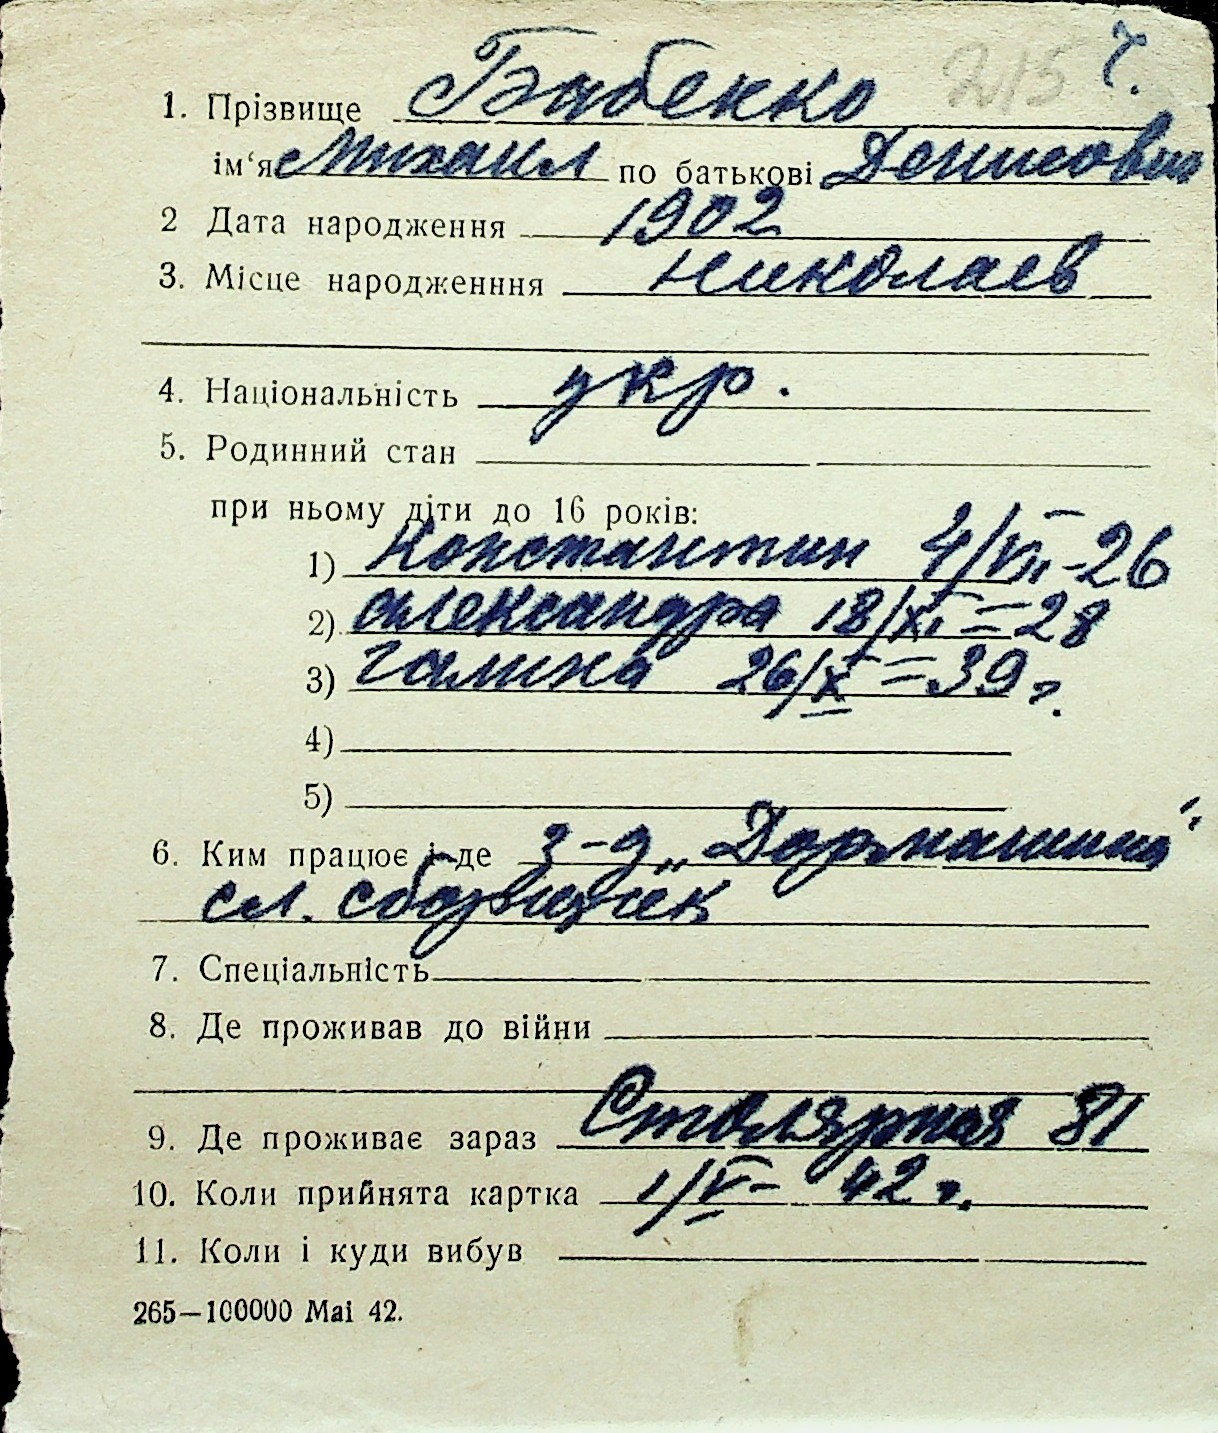 215 г.
1. Прізвище Бабенко
ім‘я Михаил по батькові Денисович
2 Дата народження 1902
3. Місце народженння Николаев
4. Національність укр.
5. Родинний стан
при ньому діти до 16 років:
1) Константин 4/VII-26
2) Александра 18/XI=28
3) Галина 26/X=39 г.
4)
5)
6. Ким працює і де з-д „Дормашина"
сл. сборщик
7. Спеціальність
8. Де проживав до війни
9. Де проживає зараз Столярная 81
10. Коли прийнята картка 1/V- 42 г.
11. Коли і куди вибув
265—100000 Mai 42.